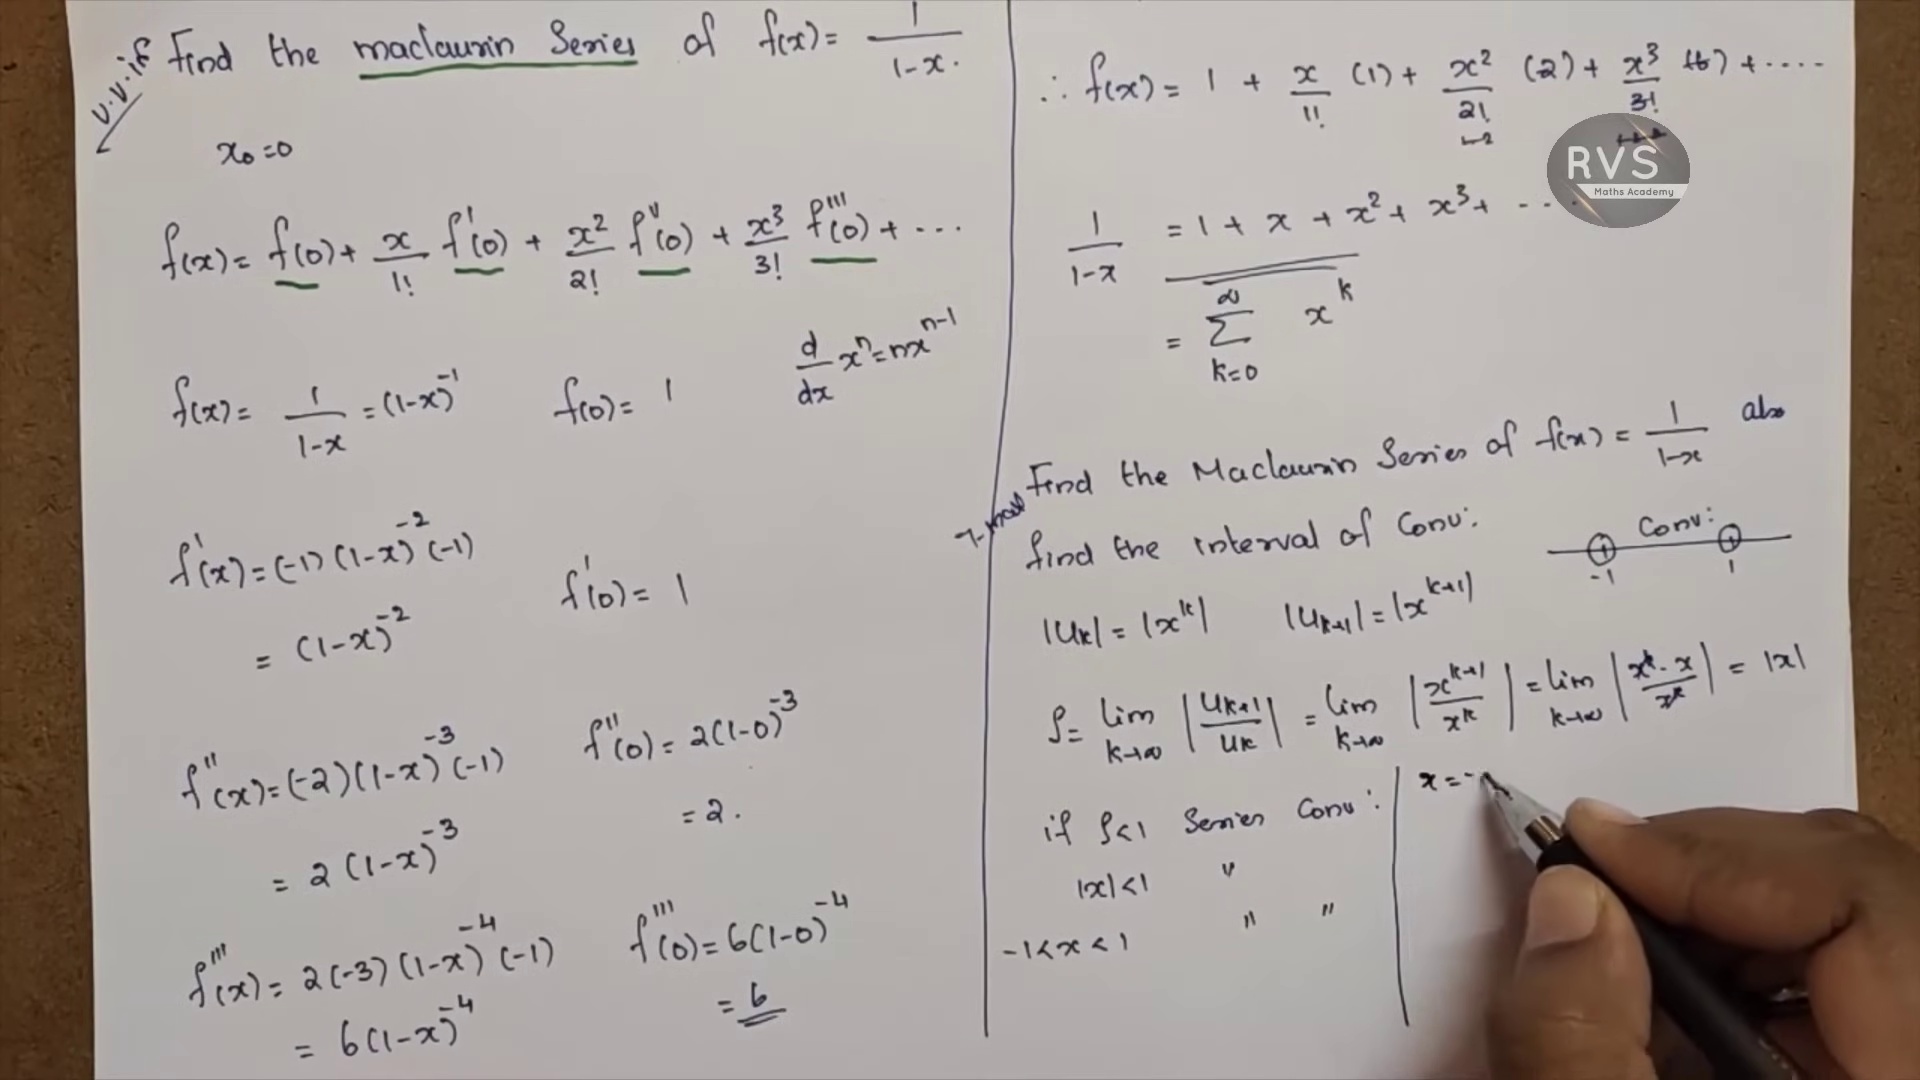 v.v.if Find the maclaurin Series of f(x) = 1/(1-x).
x₀=0
f(x) = f(0) + x/1! f'(0) + x²/2! f''(0) + x³/3! f'''(0) + ...
f(x) = 1/(1-x) = (1-x)⁻¹ f(0) = 1 d/dx xⁿ = nxⁿ⁻¹
f'(x) = (-1)(1-x)⁻²(-1)
= (1-x)⁻² f'(0) = 1
f''(x) = (-2)(1-x)⁻³(-1) f''(0) = 2(1-0)⁻³
= 2(1-x)⁻³ = 2.
f'''(x) = 2(-3)(1-x)⁻⁴(-1) f'''(0) = 6(1-0)⁻⁴
= 6(1-x)⁻⁴ = 6
∴ f(x) = 1 + x/1! (1) + x²/2! (2) + x³/3! (6) + ....
RVS
Maths Academy
1/(1-x) = 1 + x + x² + x³ + ....
= ∑_{k=0}^{∞} x^k
Find the Maclaurin Series of f(x) = 1/(1-x) also
find the interval of Conv:
Conv:
-1 1
|u_k| = |x^k| |u_{k+1}| = |x^{k+1}|
ρ = lim_{k→∞} |u_{k+1}/u_k| = lim_{k→∞} |x^{k+1}/x^k| = lim_{k→∞} |x^k · x/x^k| = |x|
if ρ<1 Series Conv:
|x|<1 "
-1<x<1 " "
x = -